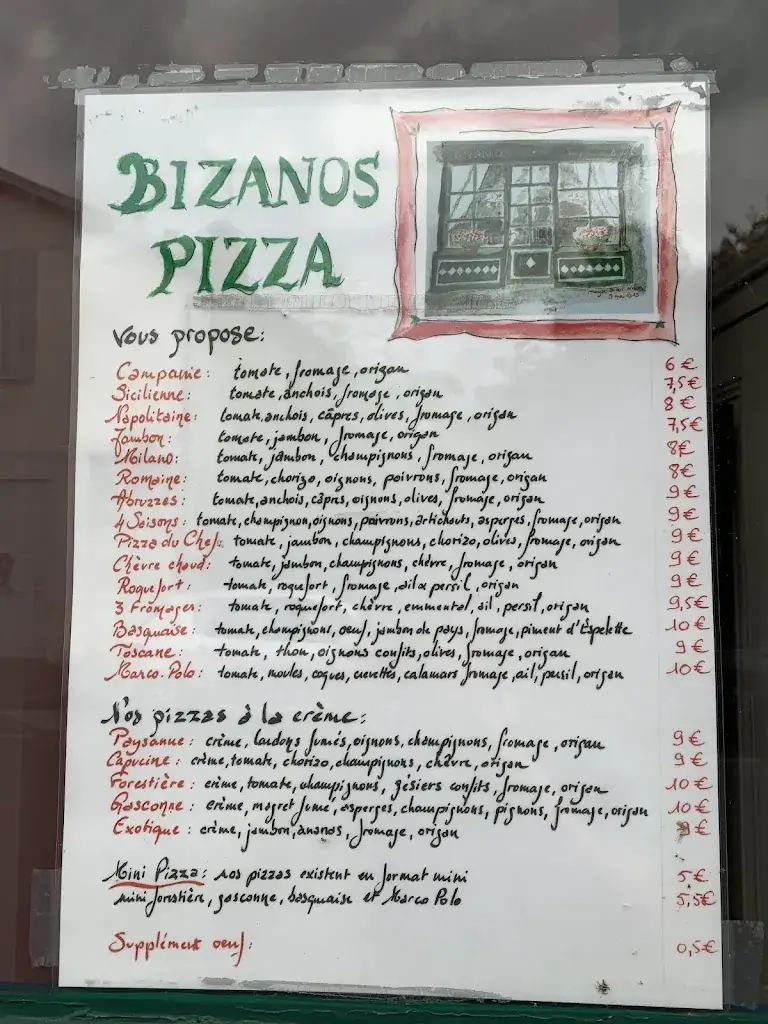 BIZANOS
PIZZA
Vous propose:
Campanie: tomate, fromage, origan 6€
Sicilienne: tomate, anchois, fromage, origan 7,5€
Napolitaine: tomate, anchois, câpres, olives, fromage, origan 8€
Jambon: tomate, jambon, fromage, origan 7,5€
Milano: tomate, jambon, champignons, fromage, origan 8€
Romaine: tomate, chorizo, oignons, poivrons, fromage, origan 8€
Abruzzes: tomate, anchois, câpres, oignons, olives, fromage, origan 9€
4 Saisons: tomate, champignon, oignons, poivrons, artichauts, asperges, fromage, origan 9€
Pizza du Chef: tomate, jambon, champignons, chorizo, olives, fromage, origan 9€
Chèvre chaud: tomate, jambon, champignons, chèvre, fromage, origan 9€
Roquefort: tomate, roquefort, fromage, ail & persil, origan 9€
3 Fromages: tomate, roquefort, chèvre, emmental, ail, persil, origan 9,5€
Basquaise: tomate, champignons, oeuf, jambon de pays, fromage, piment d'Espelette 10€
Toscane: tomate, thon, oignons confits, olives, fromage, origan 9€
Marco.Polo: tomate, moules, coques, crevettes, calamars fromage, ail, persil, origan 10€
Nos pizzas à la crème:
Paysanne: crème, lardons fumés, oignons, champignons, fromage, origan 9€
Capucine: crème, tomate, chorizo, champignons, chèvre, origan 9€
Forestière: crème, tomate, champignons, gésiers confits, fromage, origan 10€
Gasconne: crème, magret fumé, asperges, champignons, pignons, fromage, origan 10€
Exotique: crème, jambon, ananas, fromage, origan 9€
Mini Pizza: nos pizzas existent en format mini 5€
mini forestière, gasconne, basquaise et Marco Polo 5,5€
Supplément oeuf: 0,5€